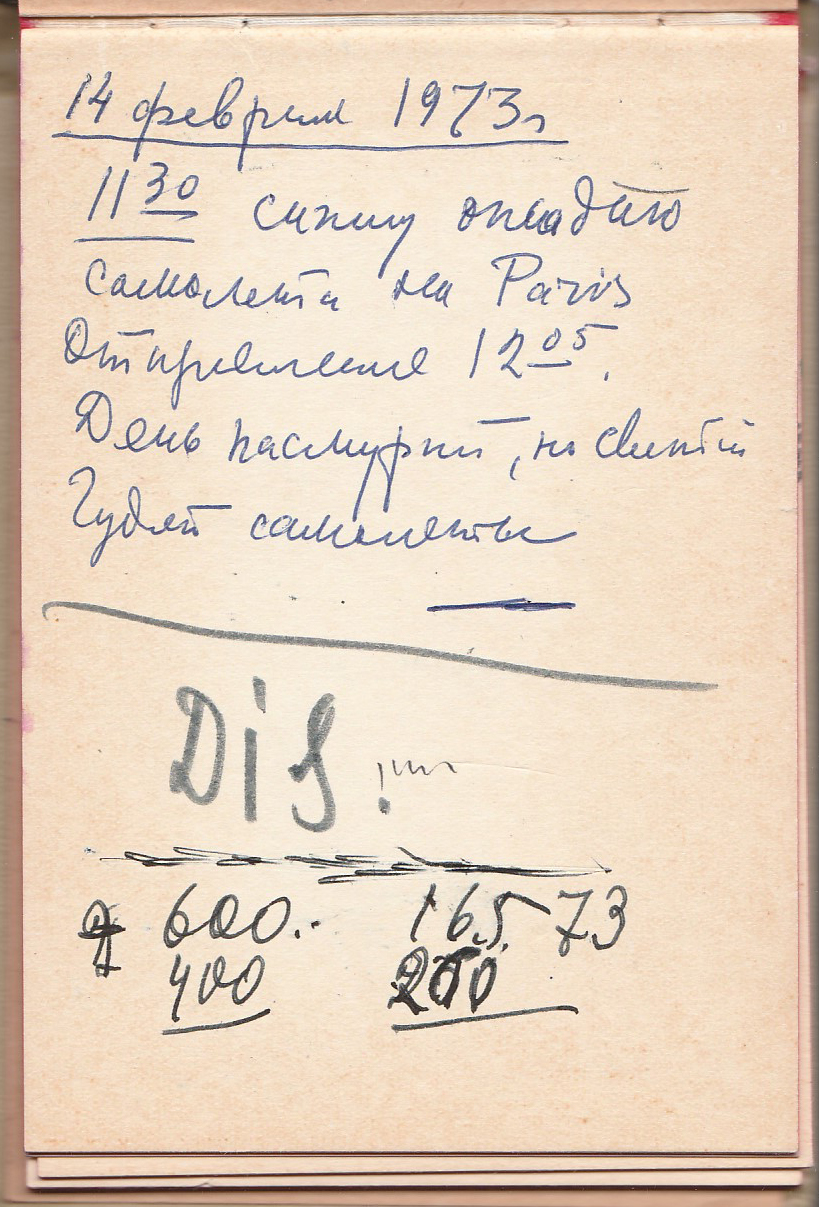 14 февраля 1973г
11 30 сижу ожидаю
самолета на Paris
Отправление 12 05.
День пасмурный, но светлый
Гудят самолеты
DiS
600.. 16.5. 73
400 200